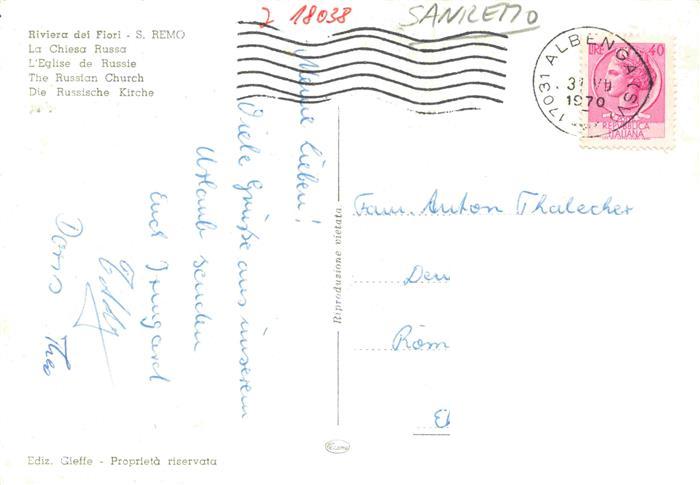 Riviera dei Fiori - S. REMO
La Chiesa Russa
L'Eglise de Russie
The Russian Church
Die Russische Kirche
I 18038
SANREMO
17031 ALBENGA (SV)
31 VII
1970
LIRE 40
REPUBBLICA
ITALIANA
Meine Lieben!
Viele Grüße aus unserem
Urlaub senden
Euch Irmgard
Doris
Theo
Riproduzione vietata
Fam. Anton Thalecher
Den
Röm
Ediz. Gieffe - Proprietà riservata